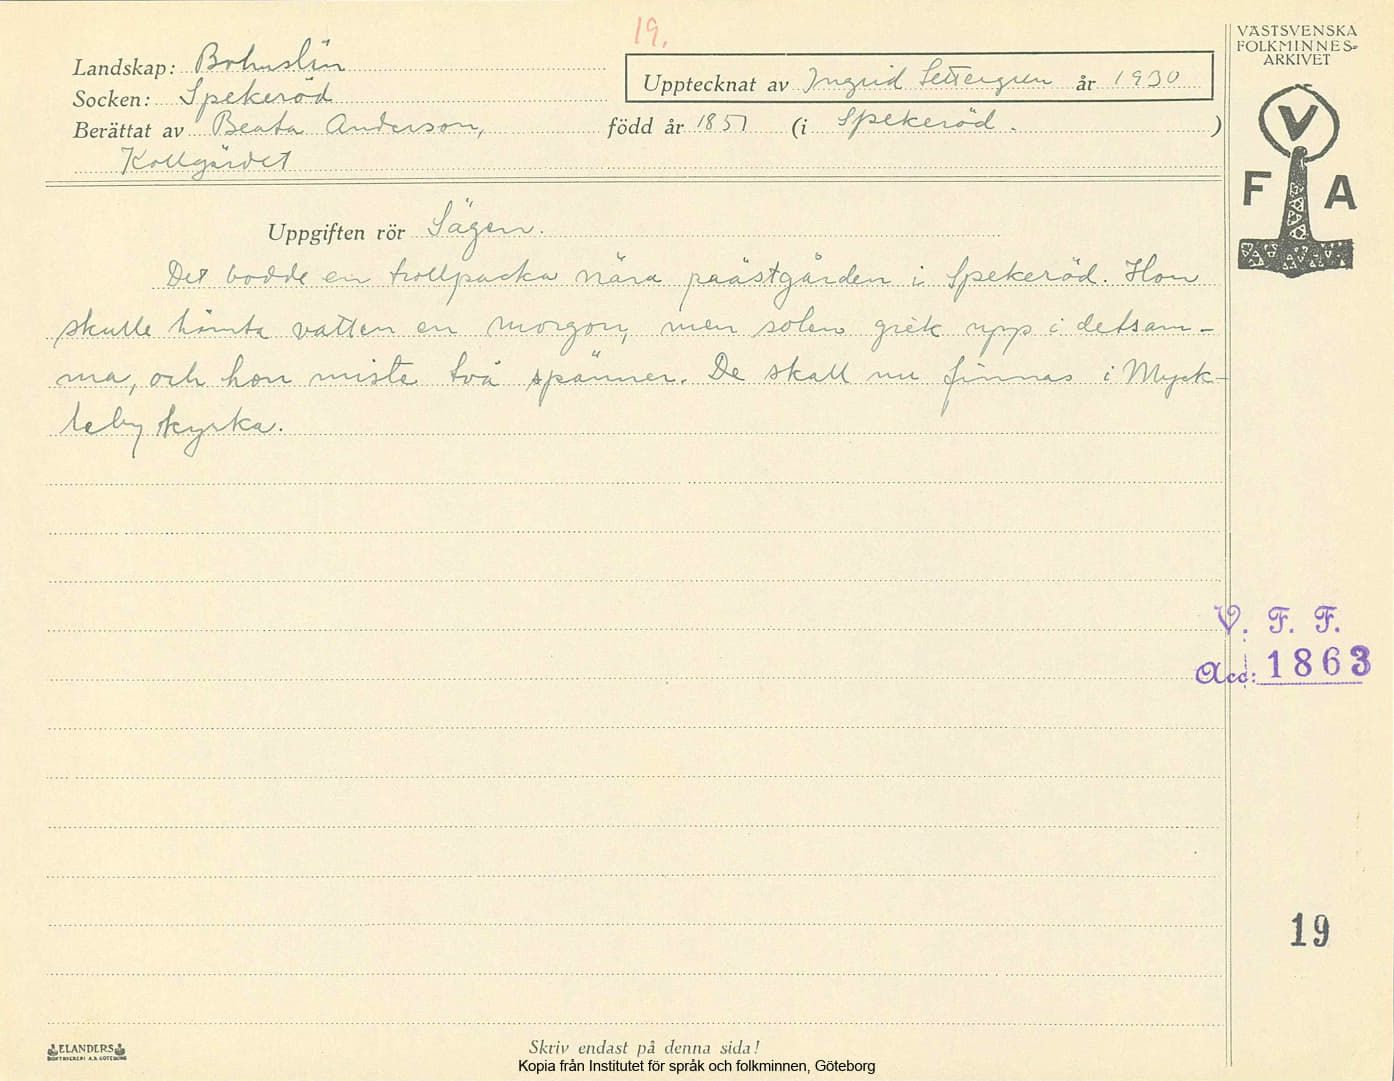 19.
Landskap: Bohuslän
Socken: Spekeröd
Upptecknat av Ingrid Settergren år 1930
Berättat av Beata Anderson, född år 1851 (i Spekeröd. )
Kollgärdet
VÄSTSVENSKA
FOLKMINNES-
ARKIVET
V
F A
Uppgiften rör Sägen.
Det bodde en trollpacka nära prästgården i Spekeröd. Hon
skulle hämta vatten en morgon, men solen gick upp i detsam-
ma, och hon miste två spänner. De skall nu finnas i Myck-
leby kyrka.
V. F. F.
Acc: 1863
19
ELANDERS
BOKTRYCKERI A.B. GÖTEBORG
Skriv endast på denna sida!
Kopia från Institutet för språk och folkminnen, Göteborg